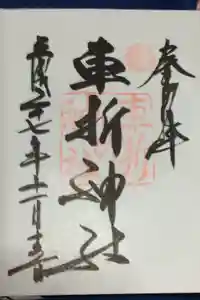 奉拝
車折神社
平成二十七年十一月三日